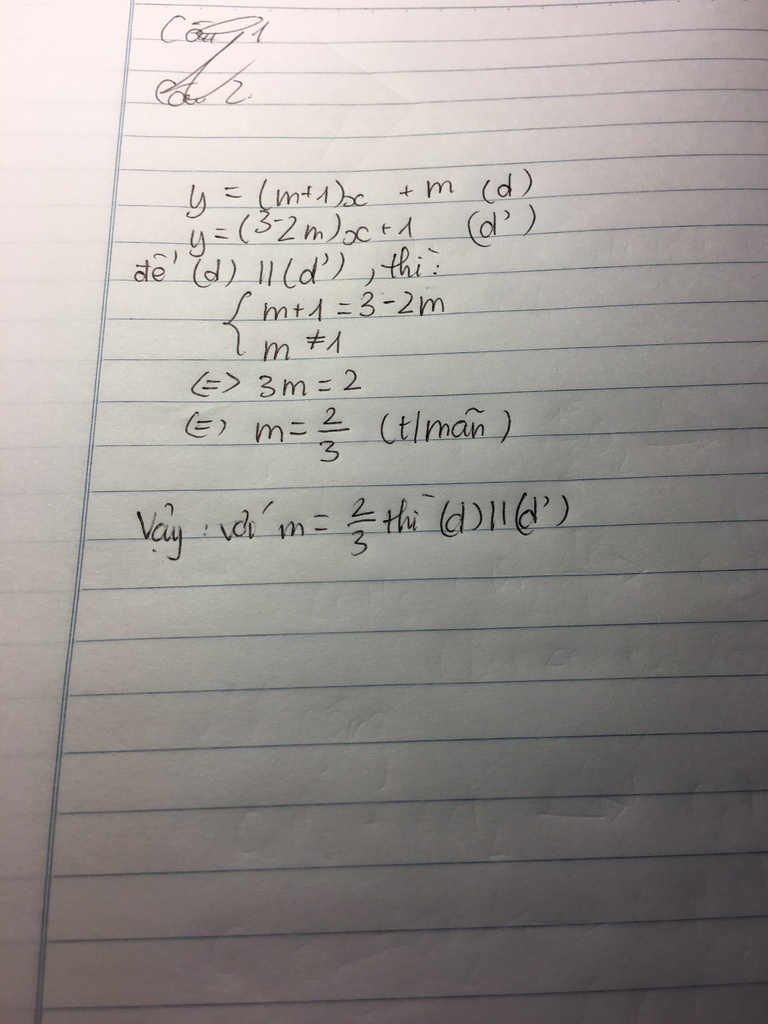 Câu 1
Câu 2.
y = (m+1)x + m (d)
y = (3-2m)x+1 (d')
để (d) || (d'), thì:
{ m+1 = 3-2m
m ≠ 1
<=> 3m = 2
<=> m = 2/3 (t/mãn)
Vậy : với m = 2/3 thì (d) || (d')